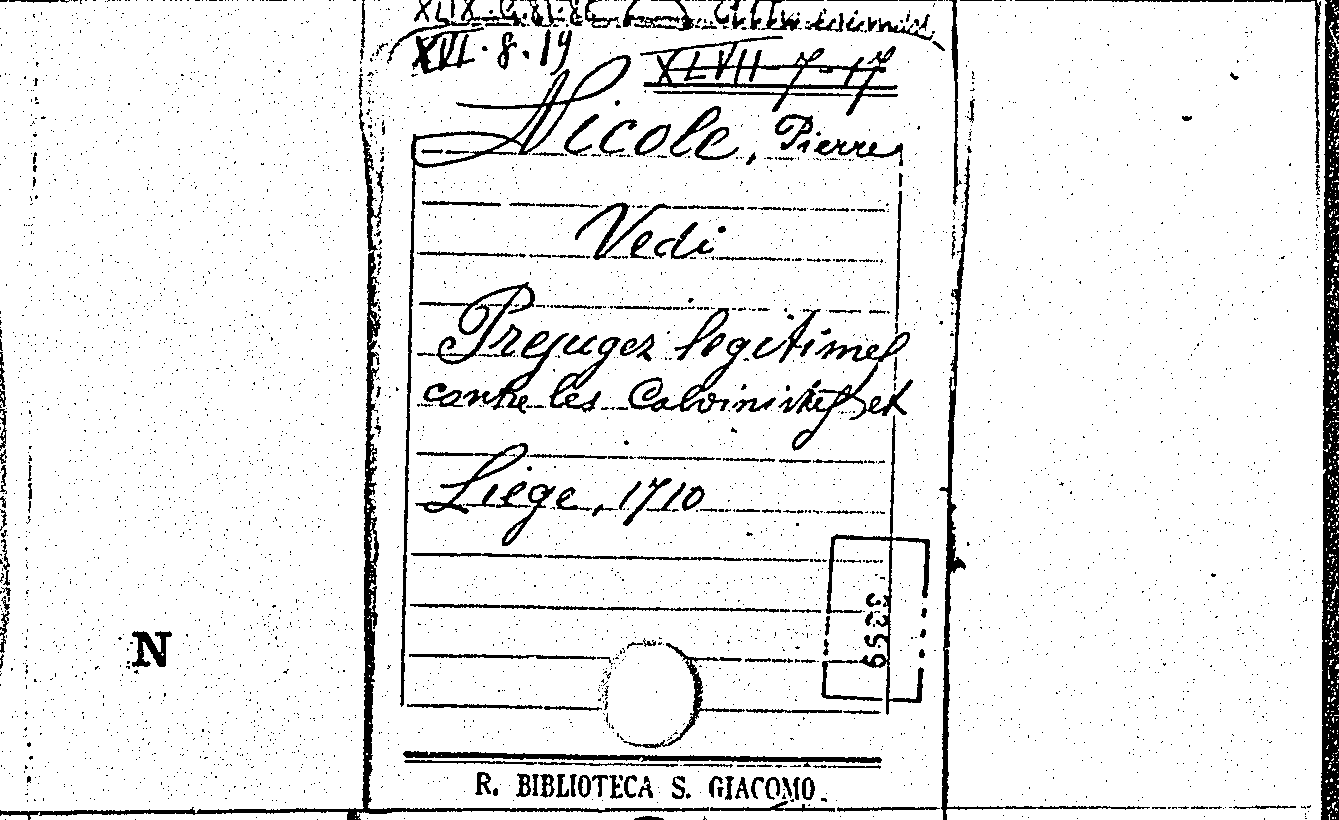 XVI.8.19
XLVII-7-17
Nicole, Pierre
Vedi
Prejugez legitimes
contre les Calvinistes et
Liege, 1710
3399
N
R. BIBLIOTECA S. GIACOMO.